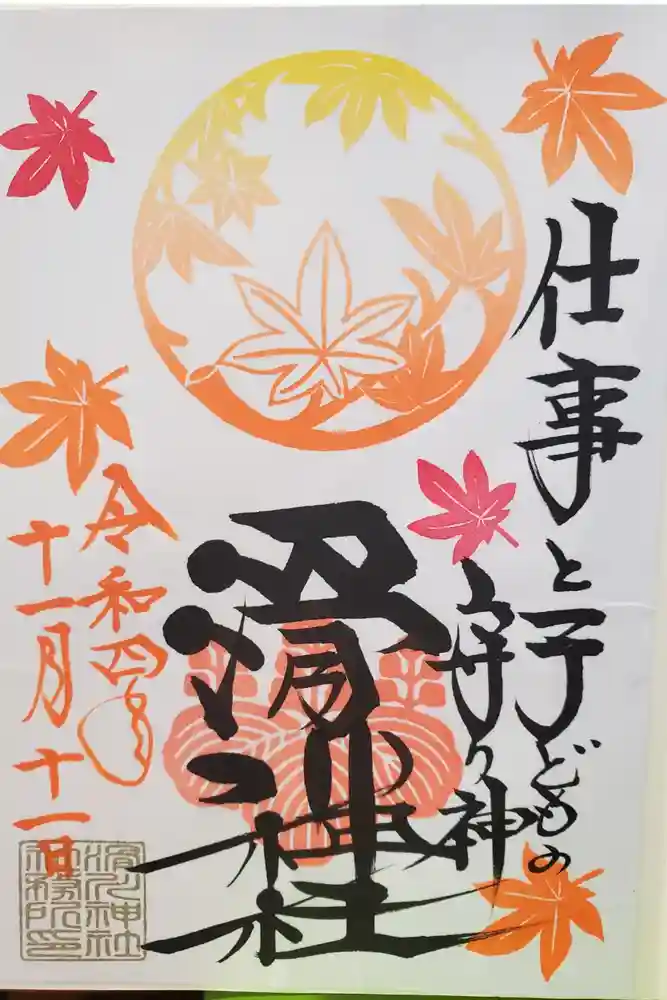 仕事と子どもの
守り神
滑川神社
令和四年
十一月十一日
滑川神社
社務所印